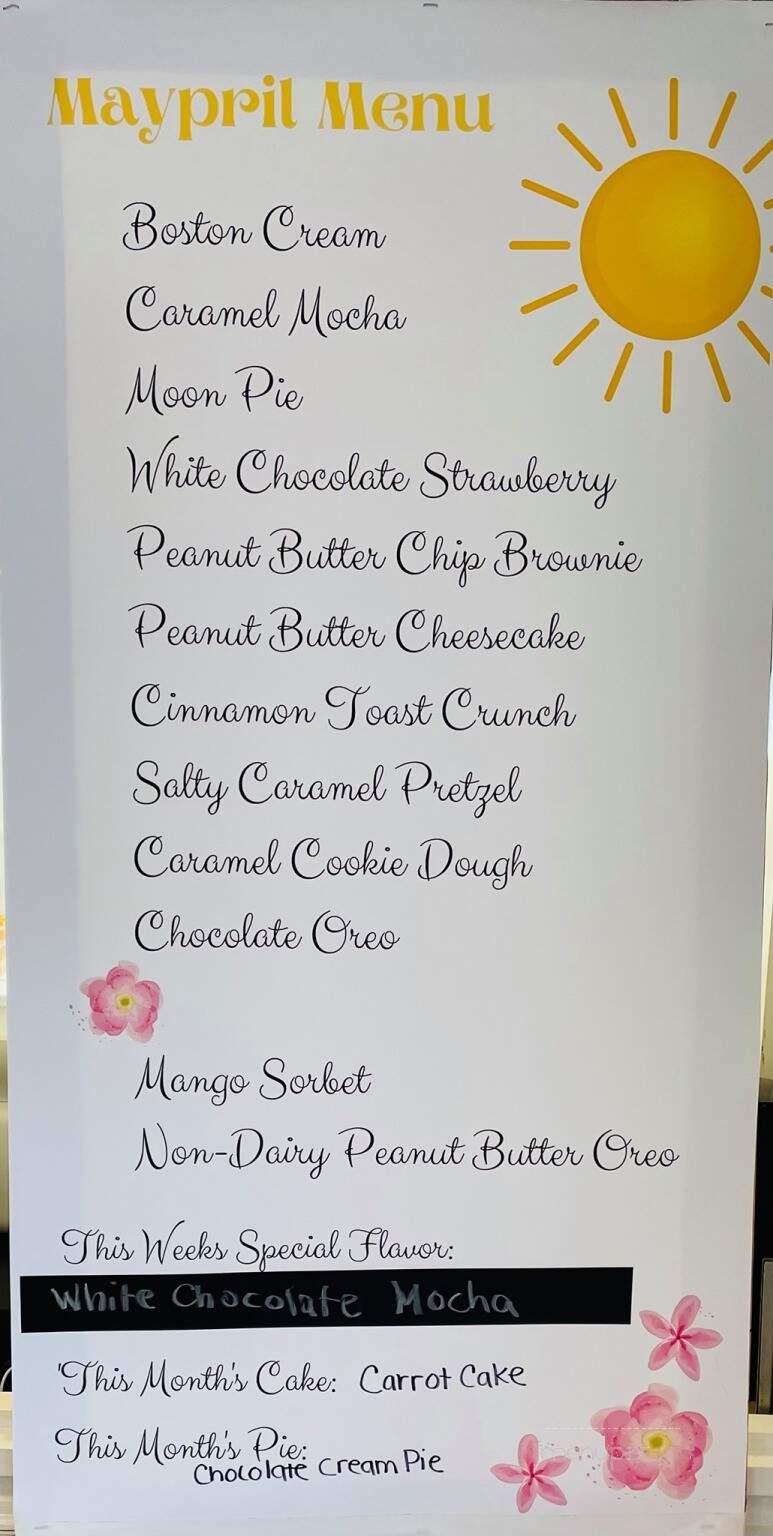 Maypril Menu
Boston Cream
Caramel Mocha
Moon Pie
White Chocolate Strawberry
Peanut Butter Chip Brownie
Peanut Butter Cheesecake
Cinnamon Toast Crunch
Salty Caramel Pretzel
Caramel Cookie Dough
Chocolate Oreo
Mango Sorbet
Non-Dairy Peanut Butter Oreo
This Weeks Special Flavor:
White Chocolate Mocha
'This Month's Cake: Carrot Cake
This Month's Pie:
Chocolate Cream Pie